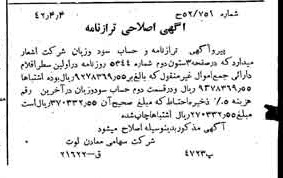 شماره ۵۲/۷۵۱ح ۴۲٫۴٫۴
آگهی اصلاحی ترازنامه
پیرو آگهی ترازنامه و حساب سود وزیان شرکت اشعار
میدارد که در صفحه ۳ ستون دوم شماره ۵۳۴۴ روزنامه در اولین سطر اقلام
دارائی جمع اموال غیر منقول که بالغ بر ۹۲۷۸۳۶۹٫۵۵ ریال بوده اشتباها
۹۳۷۸۳۶۹٫۵۵ ودر قسمت دوم حساب سود وزیان در آخرین رقم
هزینه ۵٪ ذخیره احتیاط که مبلغ صحیح آن ۳۷۰۳۳۲٫۵۵ ریال است
مبلغ ۲۷۰۳۳۲٫۵۵ ریال اشتباها چاپ شده
آگهی مذکور بدینوسیله اصلاح میشود
شرکت سهامی معادن لوت
۴۷۲۳پ ق–۲۱۶۲۲